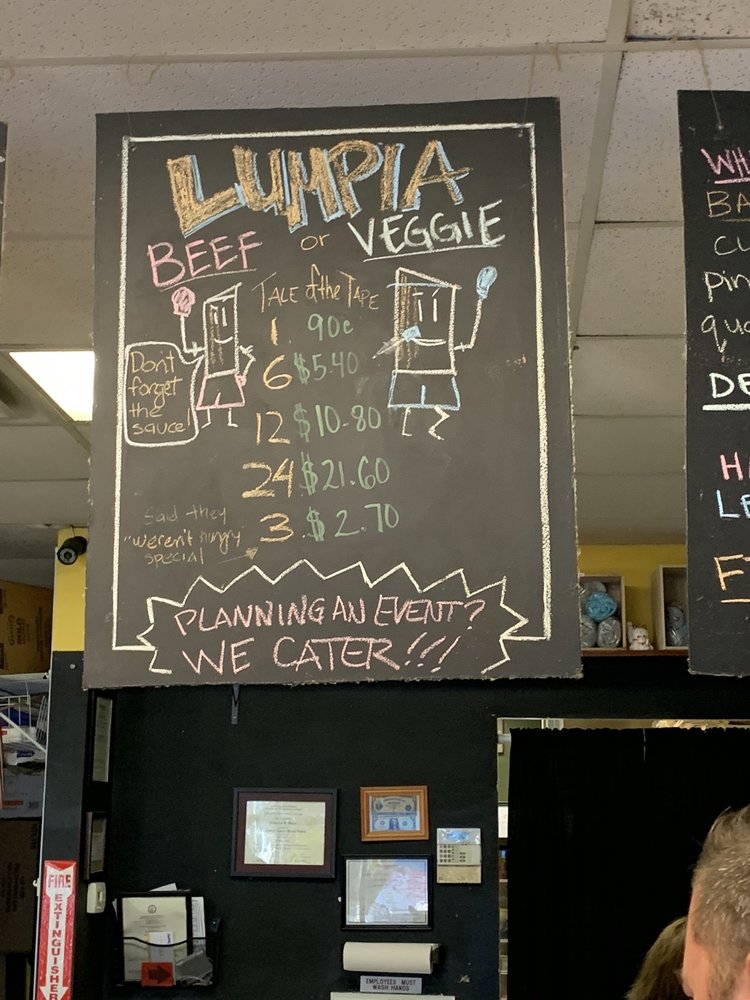 LUMPIA
BEEF or VEGGIE
TALE of the TAPE
1 90¢
6 $5.40
12 $10.80
24 $21.60
3 $2.70
Don't
forget
the
sauce!
Said they
"weren't hungry"
special
PLANNING AN EVENT?
WE CATER!!!
WH
BA
CU
pin
qua
DE
H
LE
F
FIRE
EXTINGUISHER
EMPLOYEES MUST
WASH HANDS